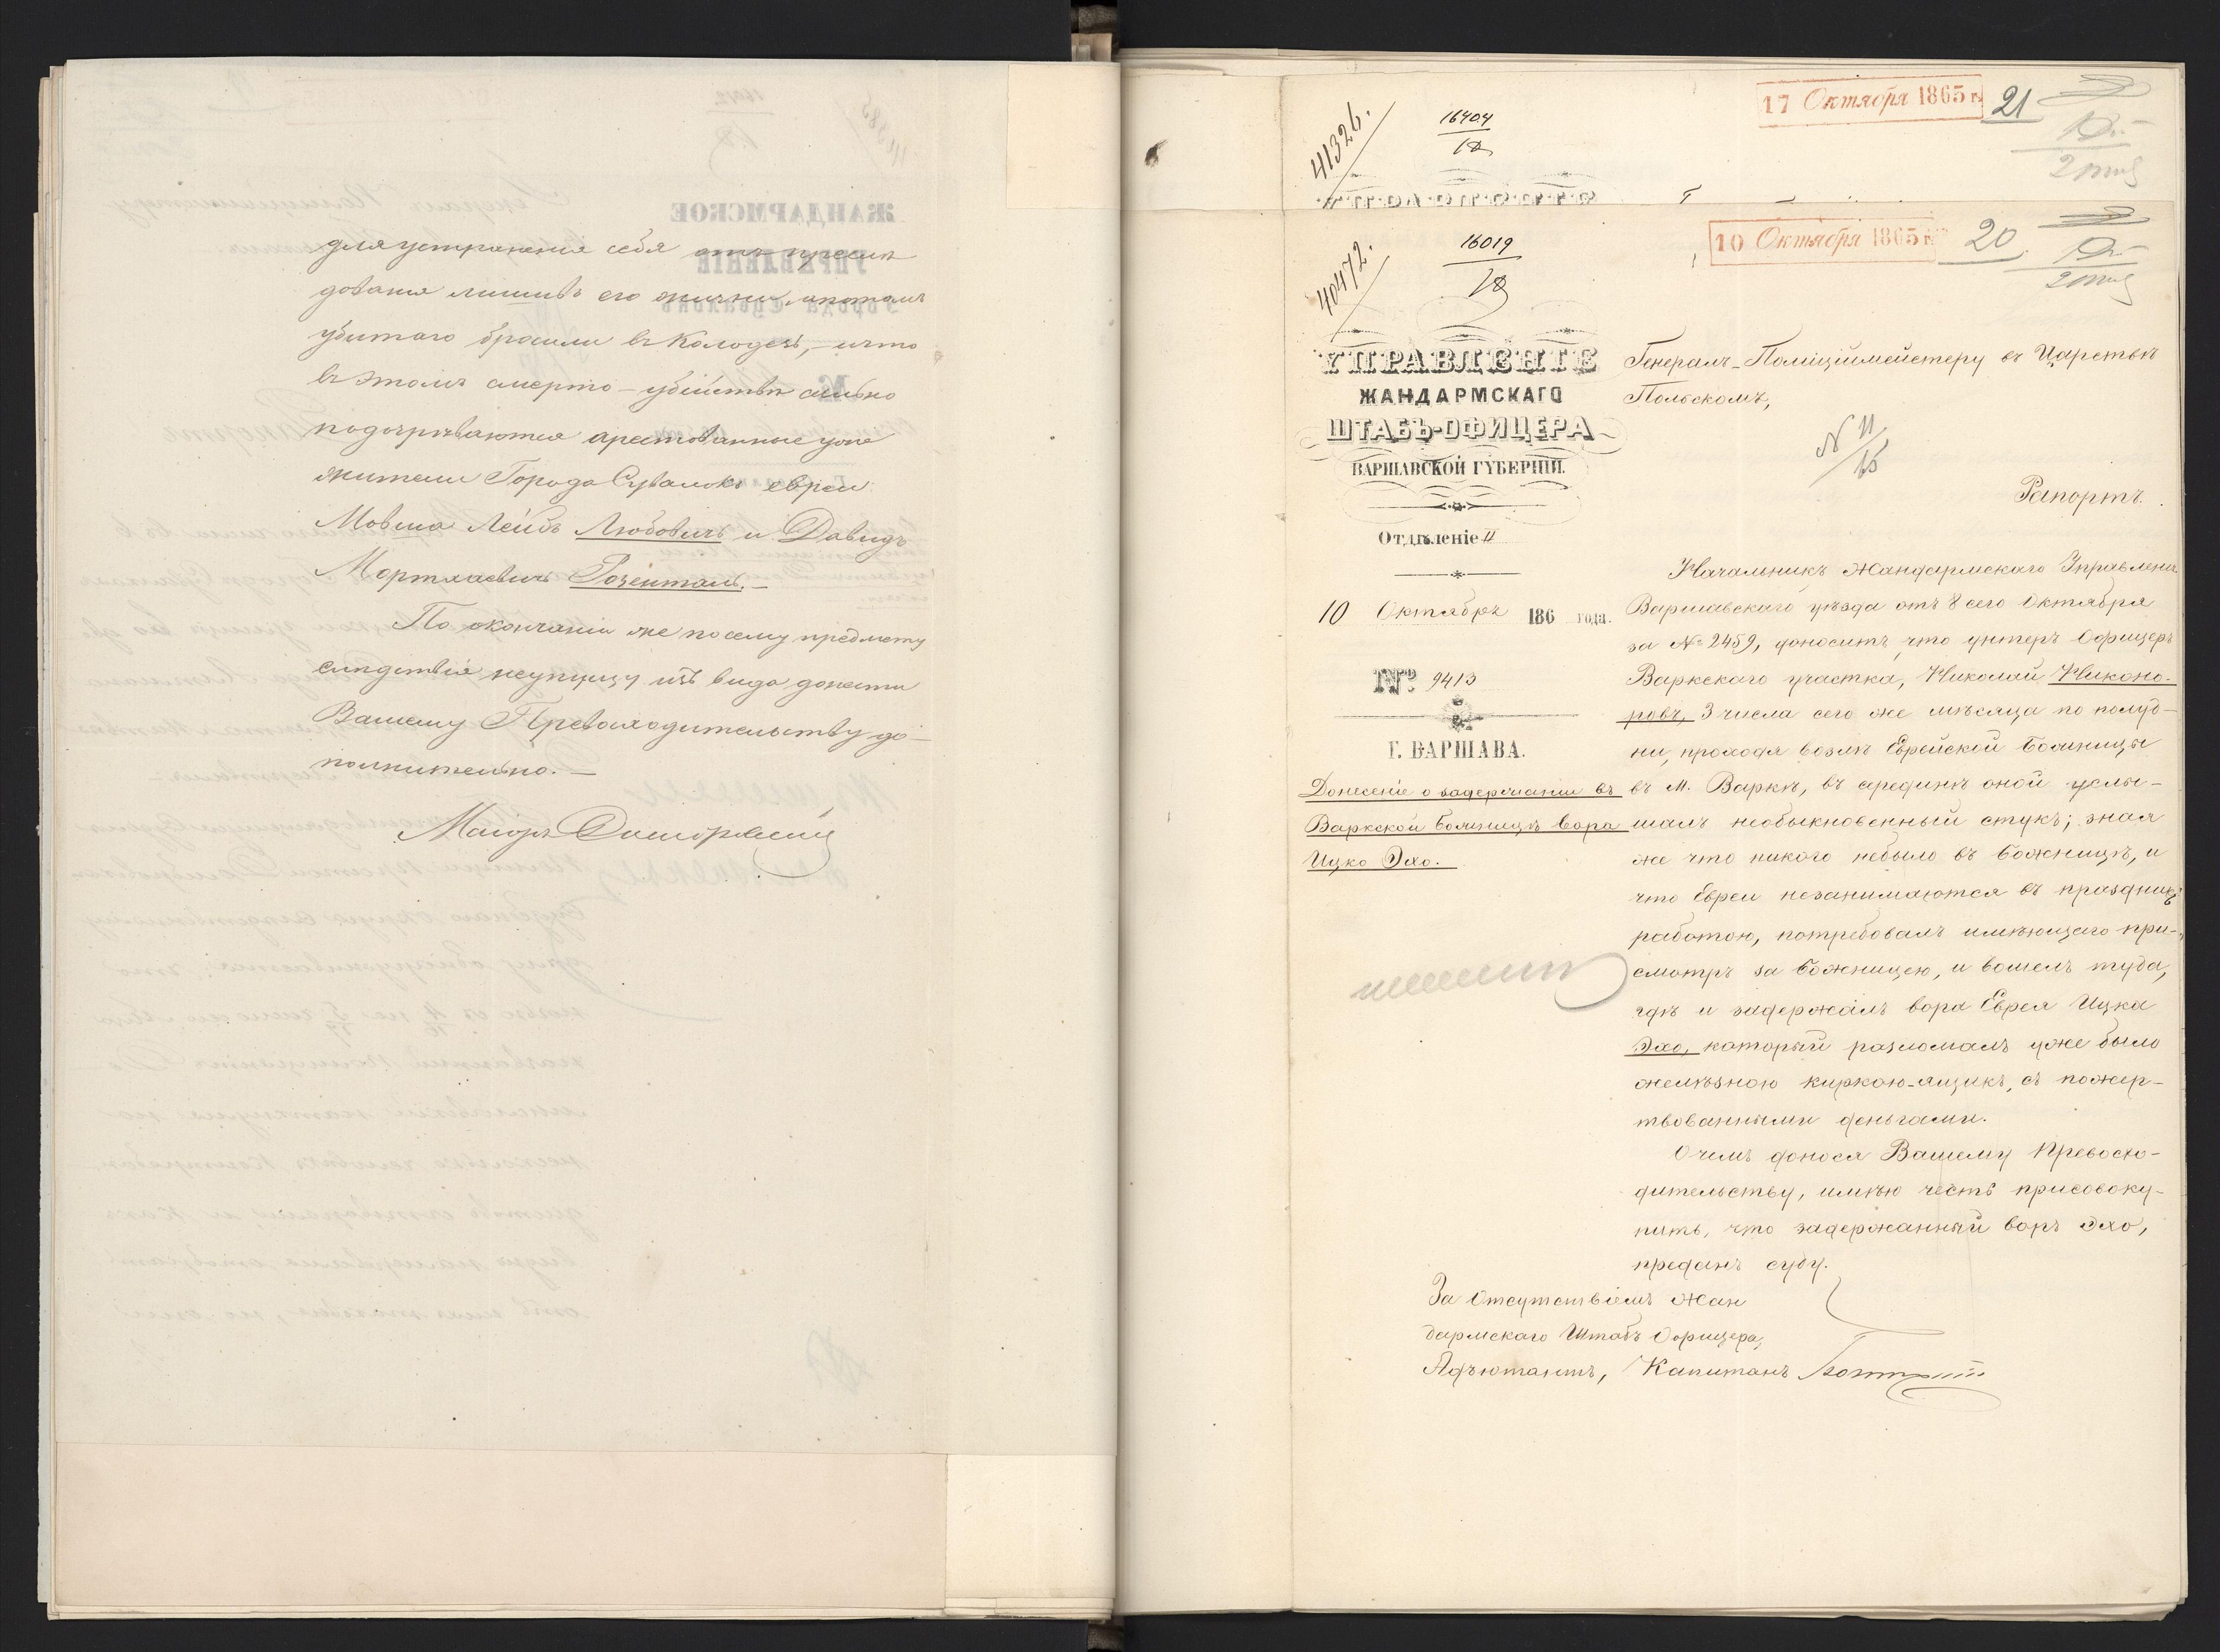 для устраненія себя отъ преслѣ
дованія лишивъ его жизни, и потомъ
убитаго бросили въ колодезь, – и что
въ этомъ смерто-убійствѣ сильно
подозрѣваются арестованные уже
жители Города Сувалокъ евреи
Мовша Лейбъ Любовичъ и Давидъ
Мортхаевичъ Розенталь. –
По окончаніи же по сему предмету
слѣдствія неупущу изъ вида донести
Вашему Превосходительству до-
полнительно. –
Маіоръ
17 Октября 1865 г. 21
41326.
16404
10 Октября 1865 г. 20
40472.
16019
УПРАВЛЕНІЕ
ЖАНДАРМСКАГО
ШТАБЪ-ОФИЦЕРА
ВАРШАВСКОЙ ГУБЕРНІИ.
Отдѣленіе II
10 Октября 186 года.
№ 9413
Г. ВАРШАВА.
Донесеніе о задержаніи въ
Варкской Божницѣ вора
Ицко Эхо.
Генералъ-Полиціймейстеру въ Царствѣ
Польскомъ,
N 11/15
Рапортъ.
Начальникъ Жандармскаго Управленія
Варшавскаго уѣзда отъ 8 сего Октября
за № 2459, доноситъ, что унтеръ Офицеръ
Варкскаго участка, Николай Никоно-
ровъ, 3 числа сего же мѣсяца по полуд-
ни, проходя возлѣ Еврейской Божницы
въ М. Варкѣ, въ срединѣ оной услы-
шалъ необыкновенный стукъ; зная
же что никого небыло въ Божницѣ, и
что Евреи незанимаются въ праздникъ
работою, потребовалъ имѣющаго при-
смотръ за Божницею, и вошелъ туда,
гдѣ и задержалъ вора Еврея Ицка
Эхо, который разломалъ уже было
желѣзною киркою ящикъ, съ пожер-
твованными деньгами.
О чемъ донося Вашему Превосхо-
дительству, имѣю честь присовоку-
пить, что задержанный воръ Эхо,
преданъ суду.
За Отсутствіемъ Жан
дармскаго Штабъ Офицера,
Адъютантъ, Капитанъ